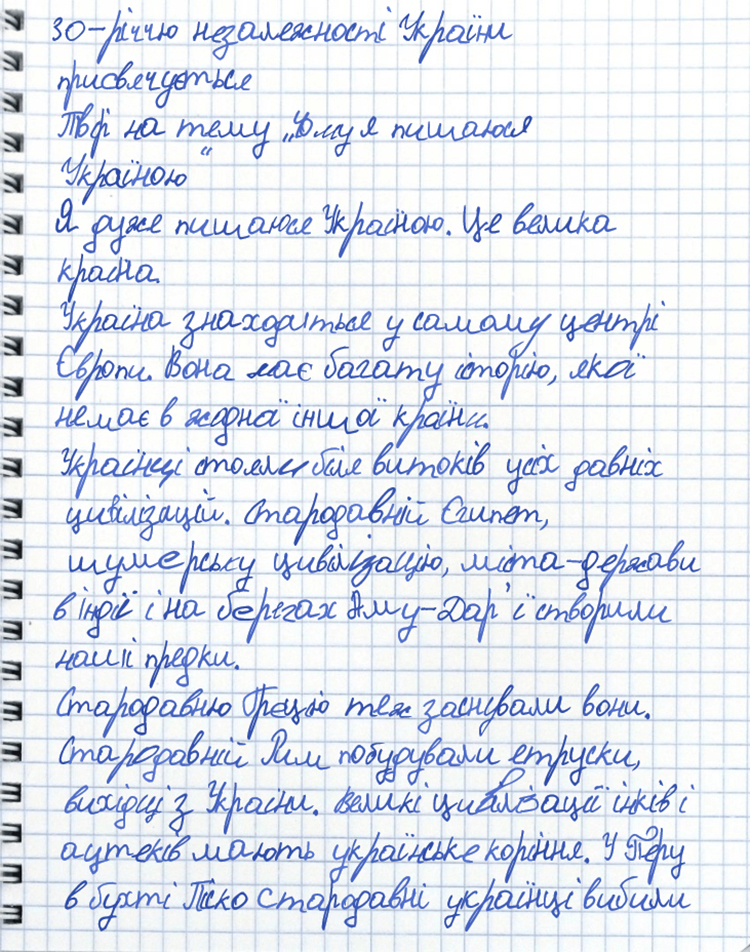 30-річчю незалежності України
присвячується
Твір на тему „Чому я пишаюся
Україною“
Я дуже пишаюся Україною. Це велика
країна.
Україна знаходиться у самому центрі
Європи. Вона має багату історію, якої
немає в жодної іншої країни.
Українці стояли біля витоків усіх давніх
цивілізацій. Стародавній Єгипет,
шумерську цивілізацію, міста-держави
в індії і на берегах Аму-Дар'ї створили
наші предки.
Стародавню Грецію теж заснували вони.
Стародавній Рим побудували етруски,
вихідці з України. Великі цивілізації інків і
ацтеків мають українське коріння. У Перу
в бухті Піско стародавні українці вибили